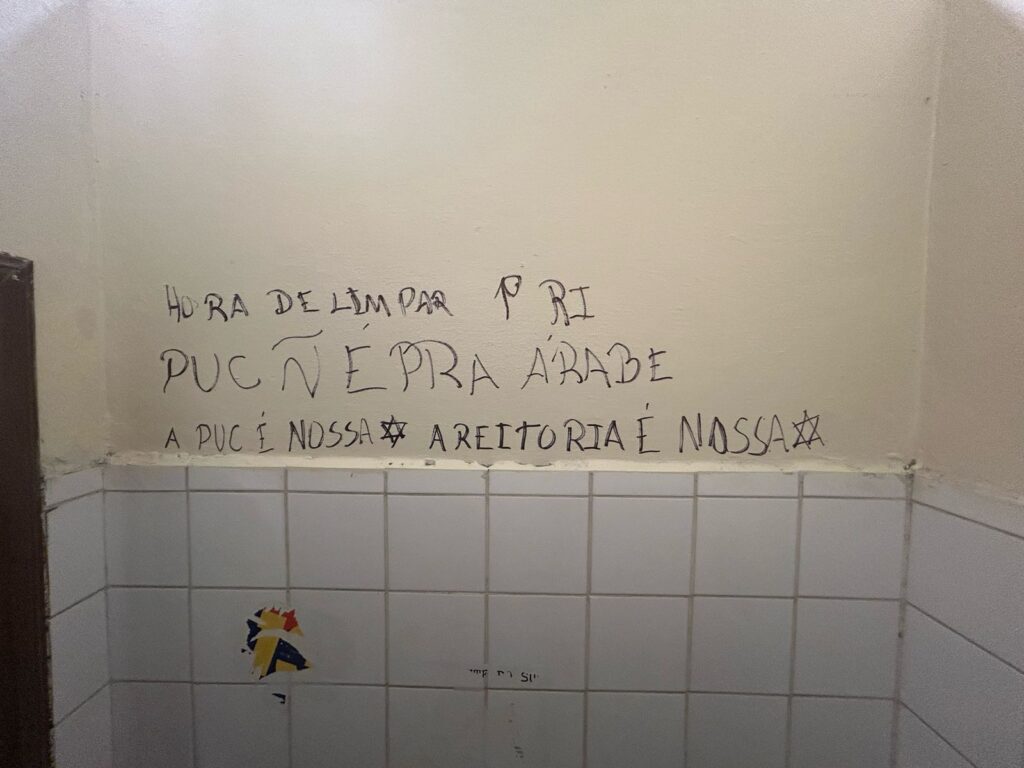 HORA DE LIMPAR P RI
PUC Ñ É PRA ÁRABE
A PUC É NOSSA ✡ A REITORIA É NOSSA ✡